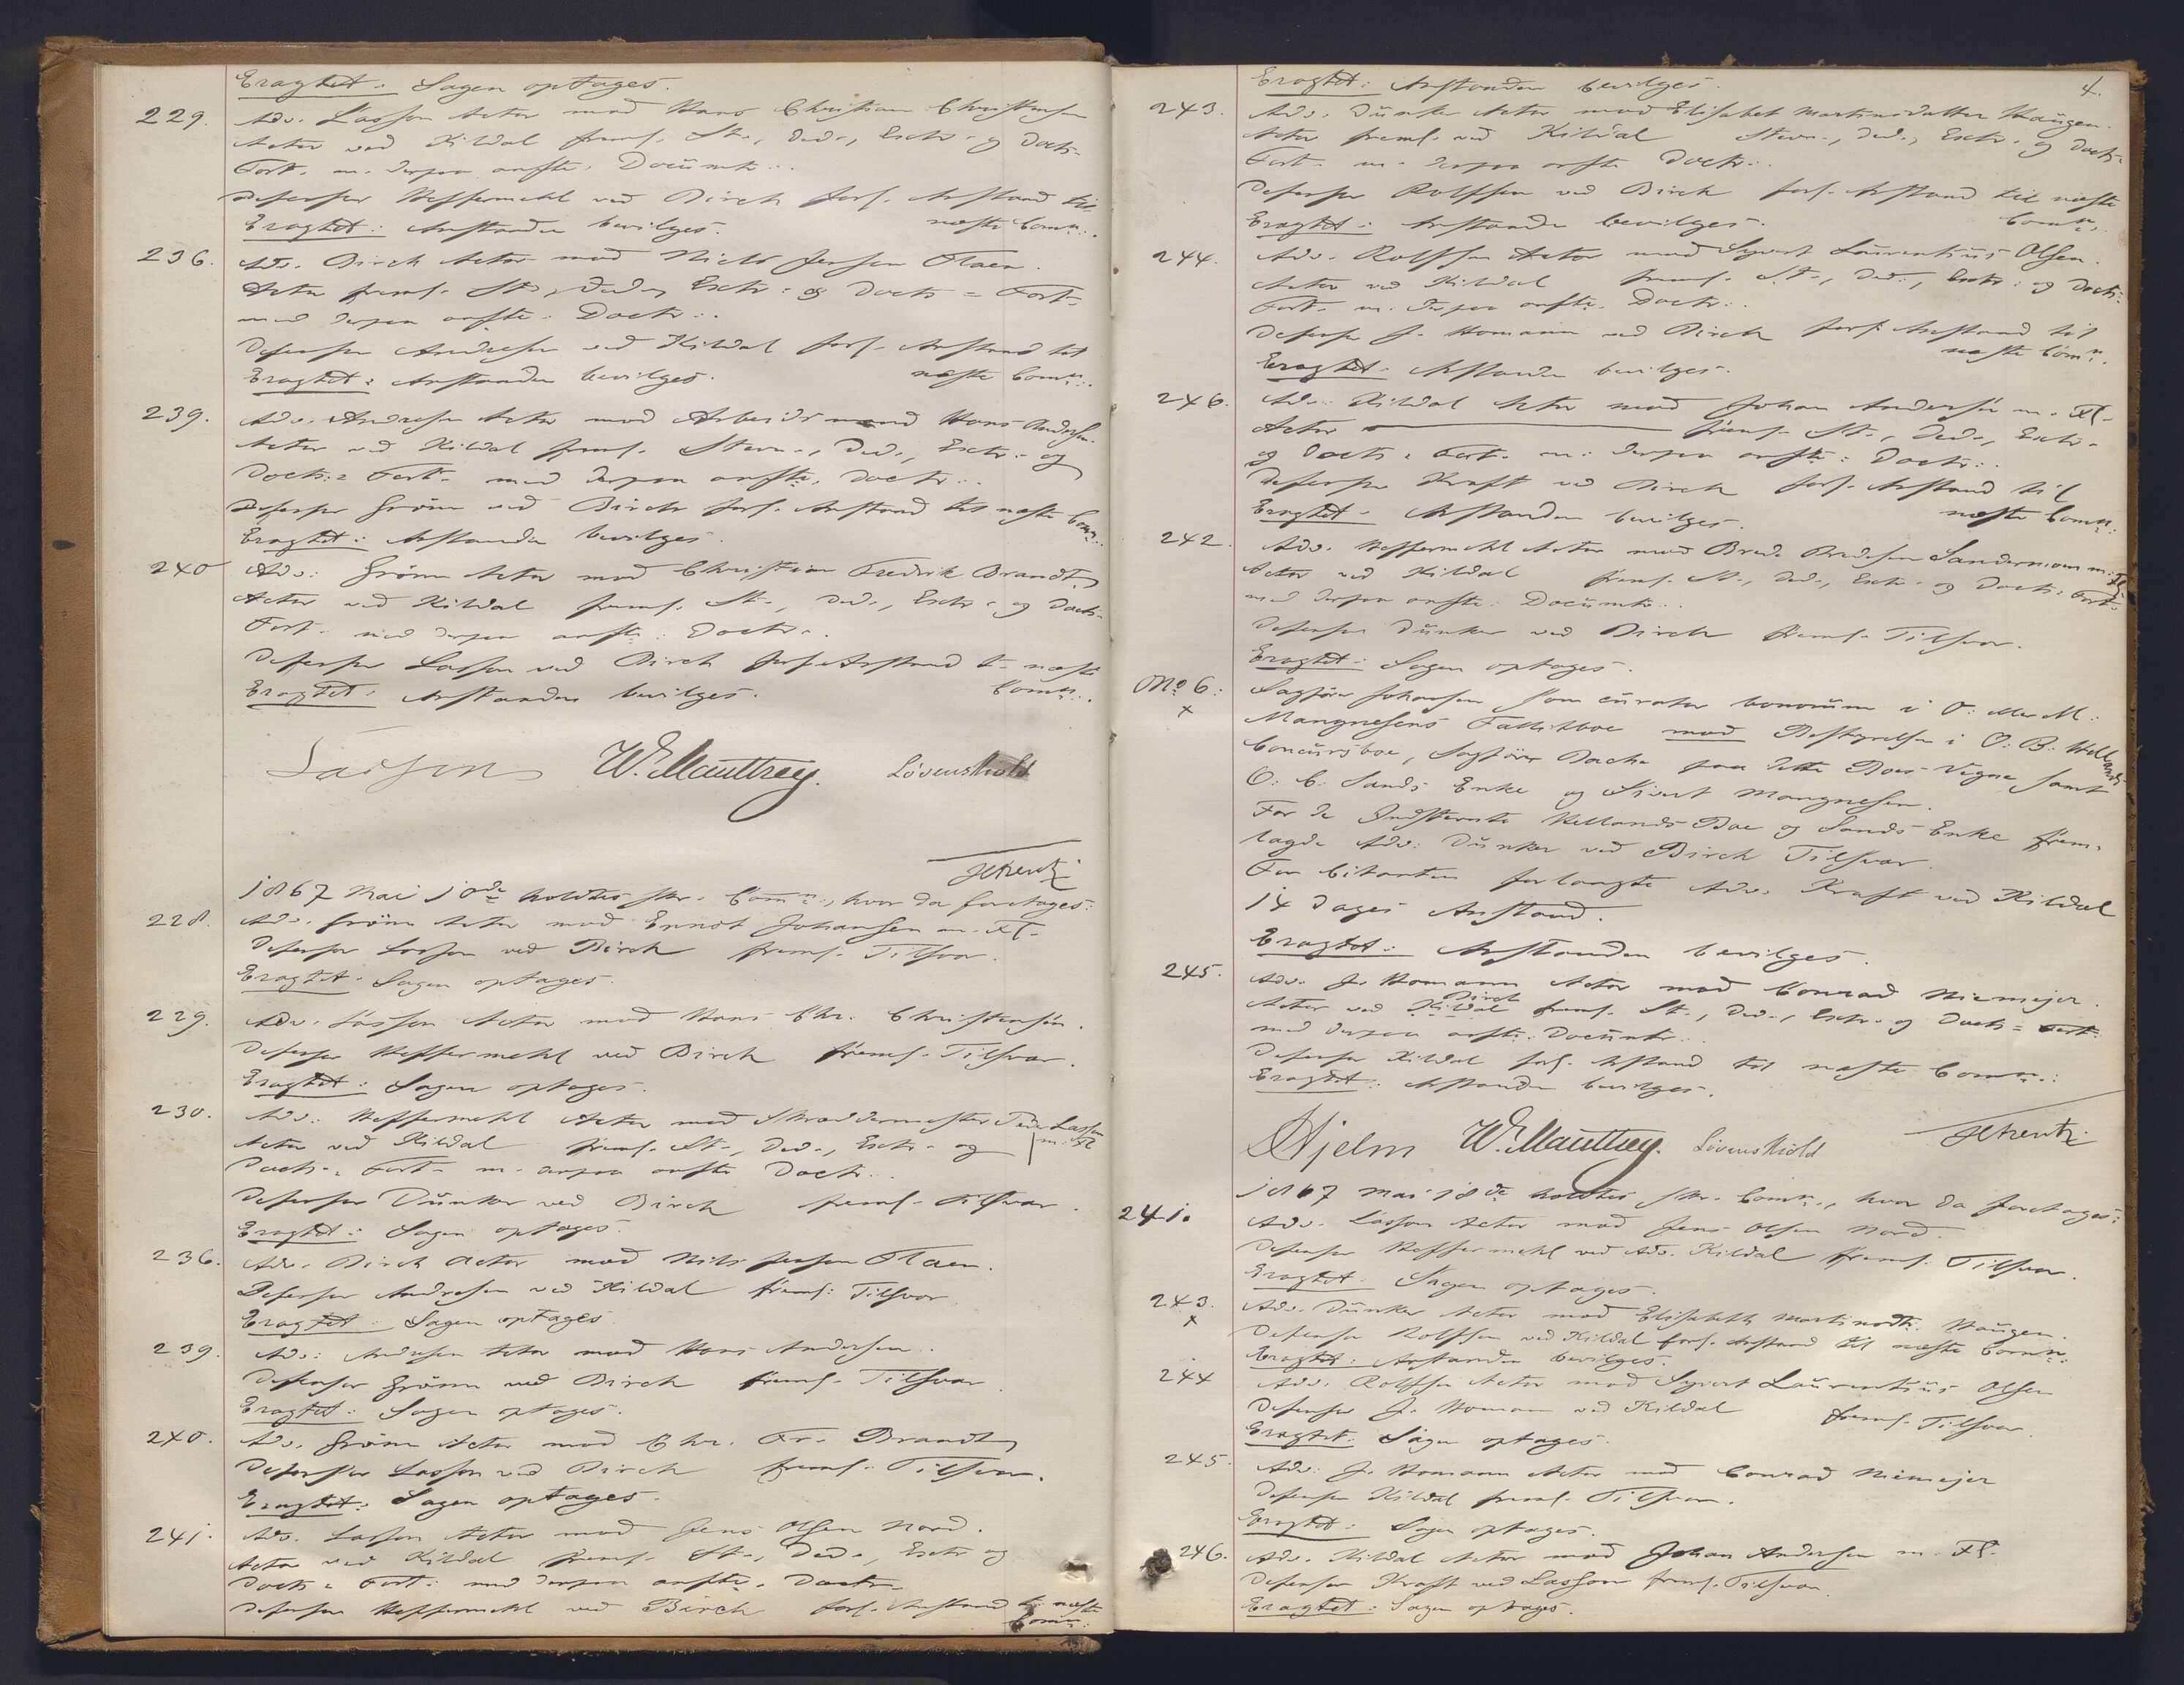 Eragtet: Sagen optages.
229. Adv. Lasson Actor mod Hans Christian Christensen
Actor ved Kildal freml. St., Ded., Extr. og Docts=
Fort. m. derpaa anfte. Documtr.
Defensor Heffermehl ved Birch forl. Anstand til
næste Comn.
Eragtet: Anstanden bevilges.
236. Adv. Birch Actor mod Niels Jensen Olaen.
Actor freml. St., Ded., Extr. og Docts= Fort.
med derpaa anfte. Doctr.
Defensor Andresen ved Kildal forl. Anstand til
næste Comn.
Eragtet: Anstanden bevilges.
239. Adv. Andresen Actor mod Arbeidsmand Hans Andersen.
Actor ved Kildal freml. Stevn., Ded., Extr. og
Docts= Fort. med derpaa anfte. Doctr.
Defensor Grönn ved Birch forl. Anstand til næste Comn.
Eragtet: Anstanden bevilges.
240 Adv: Grönn Actor mod Christian Fredrik Brandt,
Actor ved Kildal freml. St., Ded., Extr. og Docts=
Fort. med derpaa anfte. Doctr.
Defensor Lasson ved Birch forl. Anstand t. næste
Comn.
Eragtet: Anstanden bevilges.
Lasson W. Mauttrey. Lövenskiold
1867 Mai 10de holdtes Skr. Comn., hvor da foretoges:
228. Adv. Grönn Actor mod Ernst Johansen m. Fl.
Defensor Lasson ved Birch freml. Tilsvar.
Eragtet: Sagen optages.
229. Adv. Lasson Actor mod Hans Chr. Christensen.
Defensor Heffermehl ved Birch freml. Tilsvar.
Eragtet: Sagen optages.
230. Adv: Heffermehl Actor mod Skræddermester Peder Lassen
m. Fl
Actor ved Kildal freml. St., Ded., Extr. og
Docts= Fort. m. derpaa anfte Doctr.
Defensor Dünker ved Birch freml. Tilsvar.
Eragtet: Sagen optages.
236. Adv. Birch Actor mod Nils Jensen Olaen.
Defensor Andresen ved Kildal freml: Tilsvar
Eragtet: Sagen optages.
239. Adv: Andresen Actor mod Hans Andersen.
Defensor Grönn ved Birch freml. Tilsvar.
Eragtet: Sagen optages.
240. Adv. Grönn Actor mod Chr. Fr. Brandt,
Defensor Lasson ved Birch freml. Tilsvar.
Eragtet: Sagen optages.
241. Adv. Lasson Actor mod Jens Olsen Nord.
Actor ved Kildal freml. St., Ded., Extr og
Docts= Fort. med derpaa anfte. Doctr.
Defensor Heffermehl ved Birch forl. Anstand t. næste
Comn.
4.
Eragtet: Anstanden bevilges.
243. Adv. Dünker Actor mod Elisabet Martinsdatter Haugen.
Actor freml. ved Kildal Stevn., Ded., Extr. og Docts=
Fort. m. derpaa anfte Doctr.
Defensor Rolffsen ved Birch forl. Anstand til næste
Comn.
Eragtet: Anstanden bevilges.
244. Adv. Rolffsen Actor mod Syvert Laurentius Olsen.
Actor ved Kildal freml. St., Ded., Extr. og Docts=
Fort. m. derpaa anfte. Doctr.
Defensor J. Homann ved Birch forl. Anstand til
næste Comn.
Eragtet: Anstanden bevilges.
246. Adv. Kildal Actor mod Johan Andersen m. Fl.
Actor freml. St., Ded., Extr.
og Docts= Fort. m. derpaa anfte: Doctr.
Defensor Kraft ved Birch forl. Anstand til
næste Comn.
Eragtet: Anstanden bevilges.
242. Adv. Heffermehl Actor mod Brede Bredesen Sandermoen m. Fl
Actor ved Kildal freml. St., Ded., Extr. og Docts= Fort.
med derpaa anfte: Documtr.
Defensor Dünker ved Birch freml. Tilsvar.
Eragtet: Sagen optages.
No 6: Sagförer Johansen som curator bonorum i O:
x Mangnesens Fallitboe mod Bestyrelsen i O. B. Hellands
Concursboe, Sagförer Bache paa dette Boes Vegne samt
O: C. Sands Enke og Sivert Mangnesen.
For de Indstevnte Hellands Boe og Sands Enke frem-
lagde Adv: Dünker ved Birch Tilsvar.
For Citanten forlangte Adv. Kraft ved Kildal
14 Dages Anstand.
Eragtet: Anstanden bevilges.
245. Adv. J. Homann Actor mod Conrad Niemejer.
Birch
Actor ved Kildal freml. St., Ded., Extr. og Docts= Fort.
med derpaa anfte. Documtr.
Defensor Kildal forl. Anstand til næste Comn.
Eragtet: Anstanden bevilges.
Hjelm W. Mauttrey. Lövenskiold
1867 Mai 18de holdtes Skr. Comn., hvor da foretoges:
241. Adv. Lasson Actor mod Jens Olsen Nord.
Defensor Heffermehl ved Adv. Kildal freml. Tilsvar.
Eragtet: Sagen optages.
243. Adv. Dünker Actor mod Elisabeth Martinsdtr. Haugen.
x Defensor Rolffsen ved Kildal forl. Anstand til næste Comn.
Eragtet: Anstanden bevilges.
244 Adv. Rolffsen Actor mod Syvert Laurentius Olsen
Defensor J. Homann ved Kildal freml. Tilsvar.
Eragtet: Sagen optages.
245. Adv: J. Homann Actor mod Conrad Niemejer
Defensor Kildal freml. Tilsvar.
Eragtet: Sagen optages.
246. Adv. Kildal Actor mod Johan Andersen m. Fl.
Defensor Kraft ved Lasson freml. Tilsvar.
Eragtet: Sagen optages.